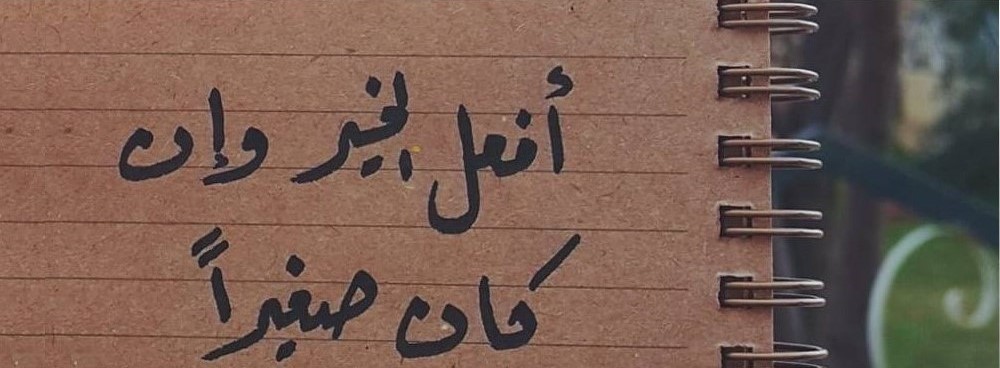 أفعل الخير وإن
كان صغيراً